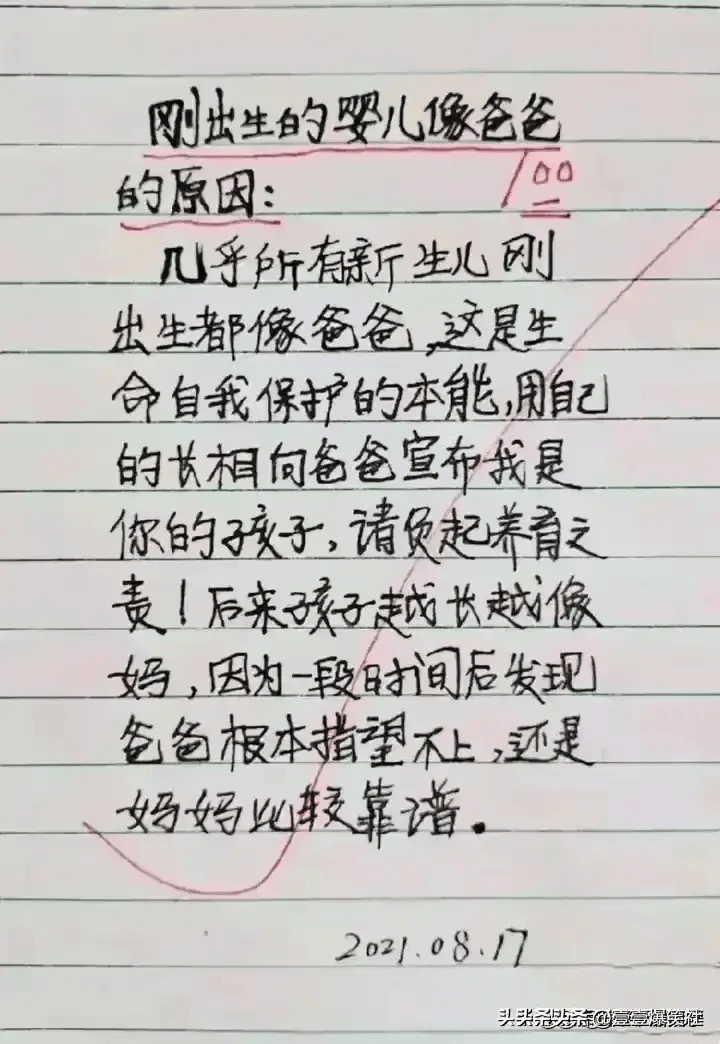 刚出生的婴儿像爸爸
的原因：
100
几乎所有新生儿刚
出生都像爸爸，这是生
命自我保护的本能，用自己
的长相向爸爸宣布我是
你的孩子，请负起养育之
责！后来孩子越长越像
妈，因为一段时间后发现
爸爸根本指望不上，还是
妈妈比较靠谱。
2021.08.17